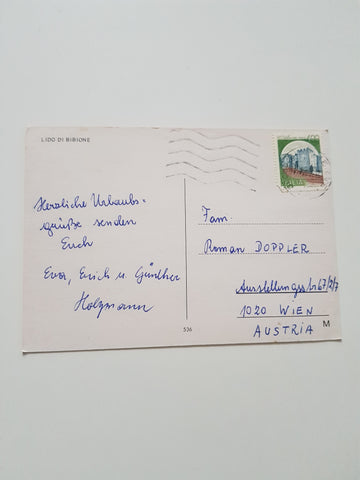 LIDO DI BIBIONE
Herzliche Urlaubs-
grüße senden
Euch
Eva, Erich u. Günther
Holzmann
400
ITALIA
Fam.
Roman DOPPLER
Ausstellungsstr 67/2/7
1020 WIEN
AUSTRIA
M
536